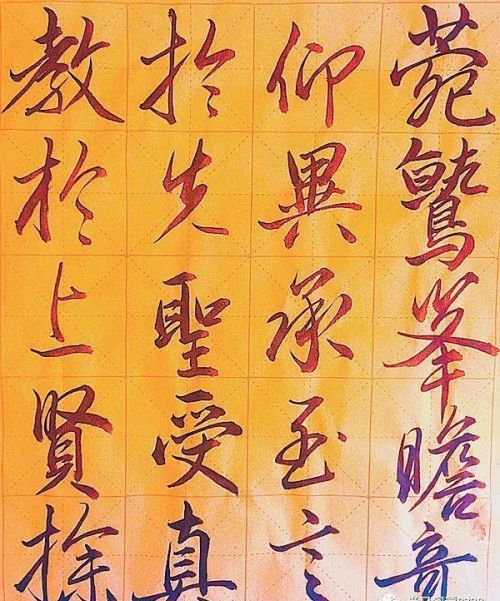 菀鷲峯瞻奇
仰異承至言
於先聖受真
教於上賢探